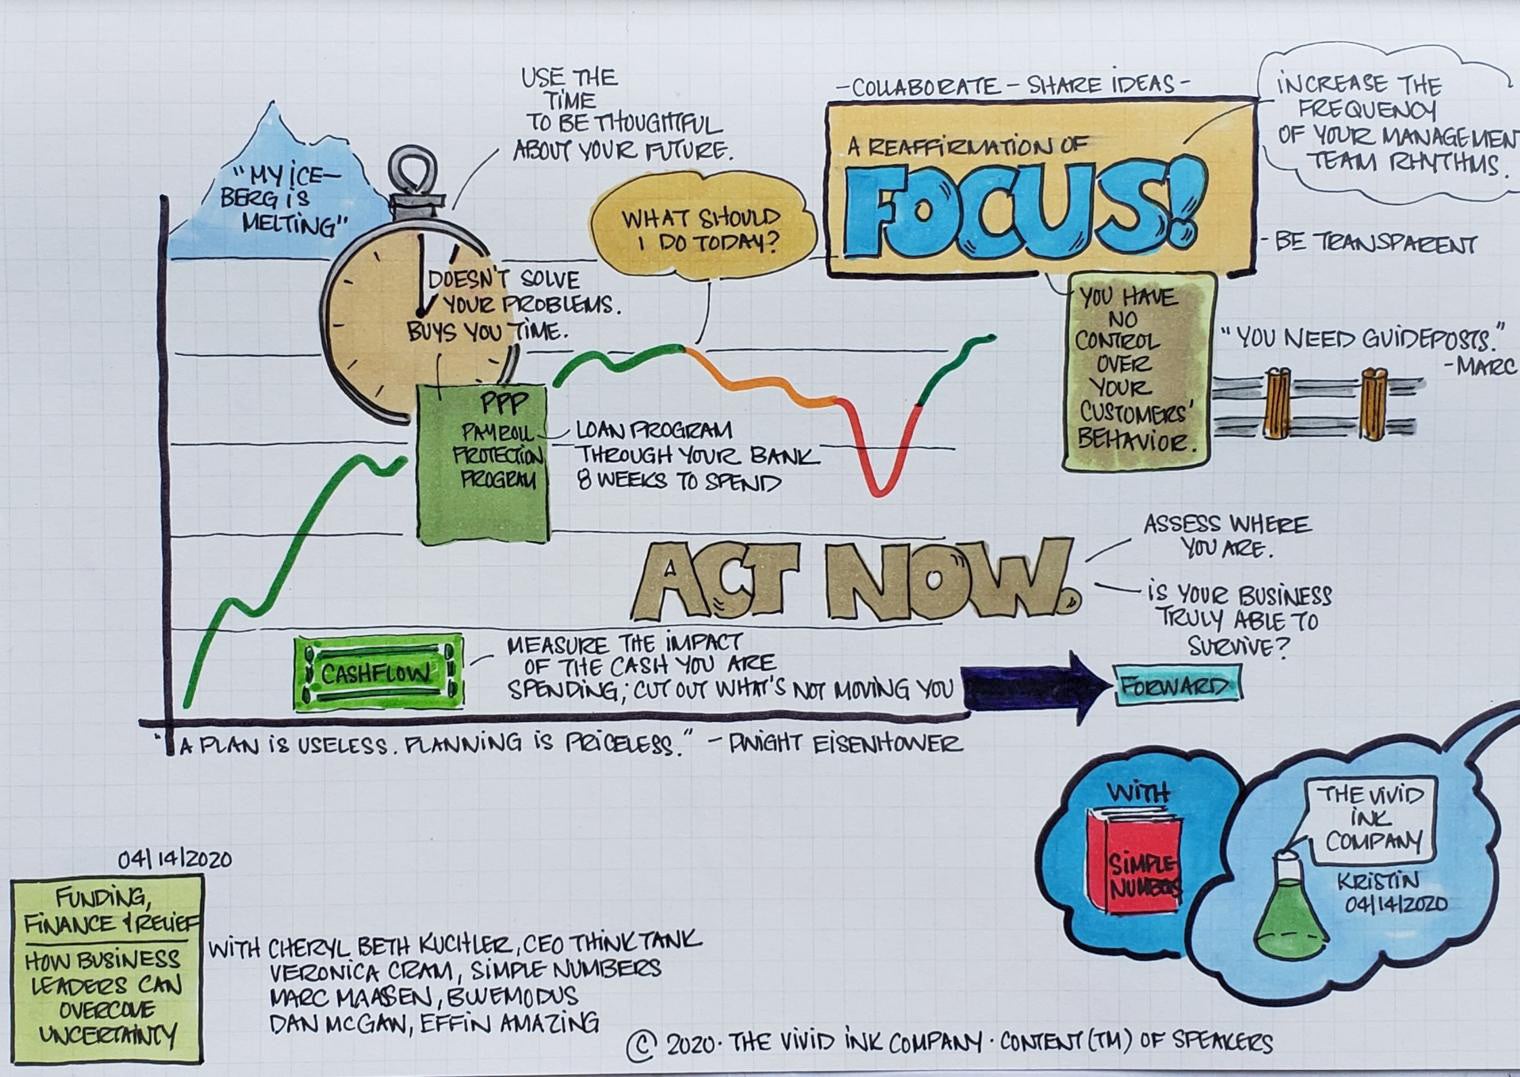 USE THE
TIME
TO BE THOUGHTFUL
ABOUT YOUR FUTURE.
"MY ICE-
BERG IS
MELTING"
DOESN'T SOLVE
YOUR PROBLEMS.
BUYS YOU TIME.
PPP
PAYROLL
PROTECTION
PROGRAM
LOAN PROGRAM
THROUGH YOUR BANK
8 WEEKS TO SPEND
WHAT SHOULD
I DO TODAY?
-COLLABORATE - SHARE IDEAS-
A REAFFIRMATION OF
FOCUS!
INCREASE THE
FREQUENCY
OF YOUR MANAGEMENT
TEAM RHYTHMS.
- BE TRANSPARENT
YOU HAVE
NO
CONTROL
OVER
YOUR
CUSTOMERS'
BEHAVIOR.
"YOU NEED GUIDEPOSTS."
-MARC
ACT NOW.
ASSESS WHERE
YOU ARE.
IS YOUR BUSINESS
TRULY ABLE TO
SURVIVE?
CASHFLOW
MEASURE THE IMPACT
OF THE CASH YOU ARE
SPENDING; CUT OUT WHAT'S NOT MOVING YOU
FORWARD
"A PLAN IS USELESS. PLANNING IS PRICELESS." - DWIGHT EISENHOWER
WITH
SIMPLE
NUMBERS
THE VIVID
INK
COMPANY
KRISTIN
04/14/2020
04/14/2020
FUNDING,
FINANCE & RELIEF
HOW BUSINESS
LEADERS CAN
OVERCOME
UNCERTAINTY
WITH CHERYL BETH KUCHLER, CEO THINK TANK
VERONICA CRAM, SIMPLE NUMBERS
MARC MAASEN, BLUEMODUS
DAN MCGAW, EFFIN AMAZING
© 2020 · THE VIVID INK COMPANY · CONTENT (TM) OF SPEAKERS